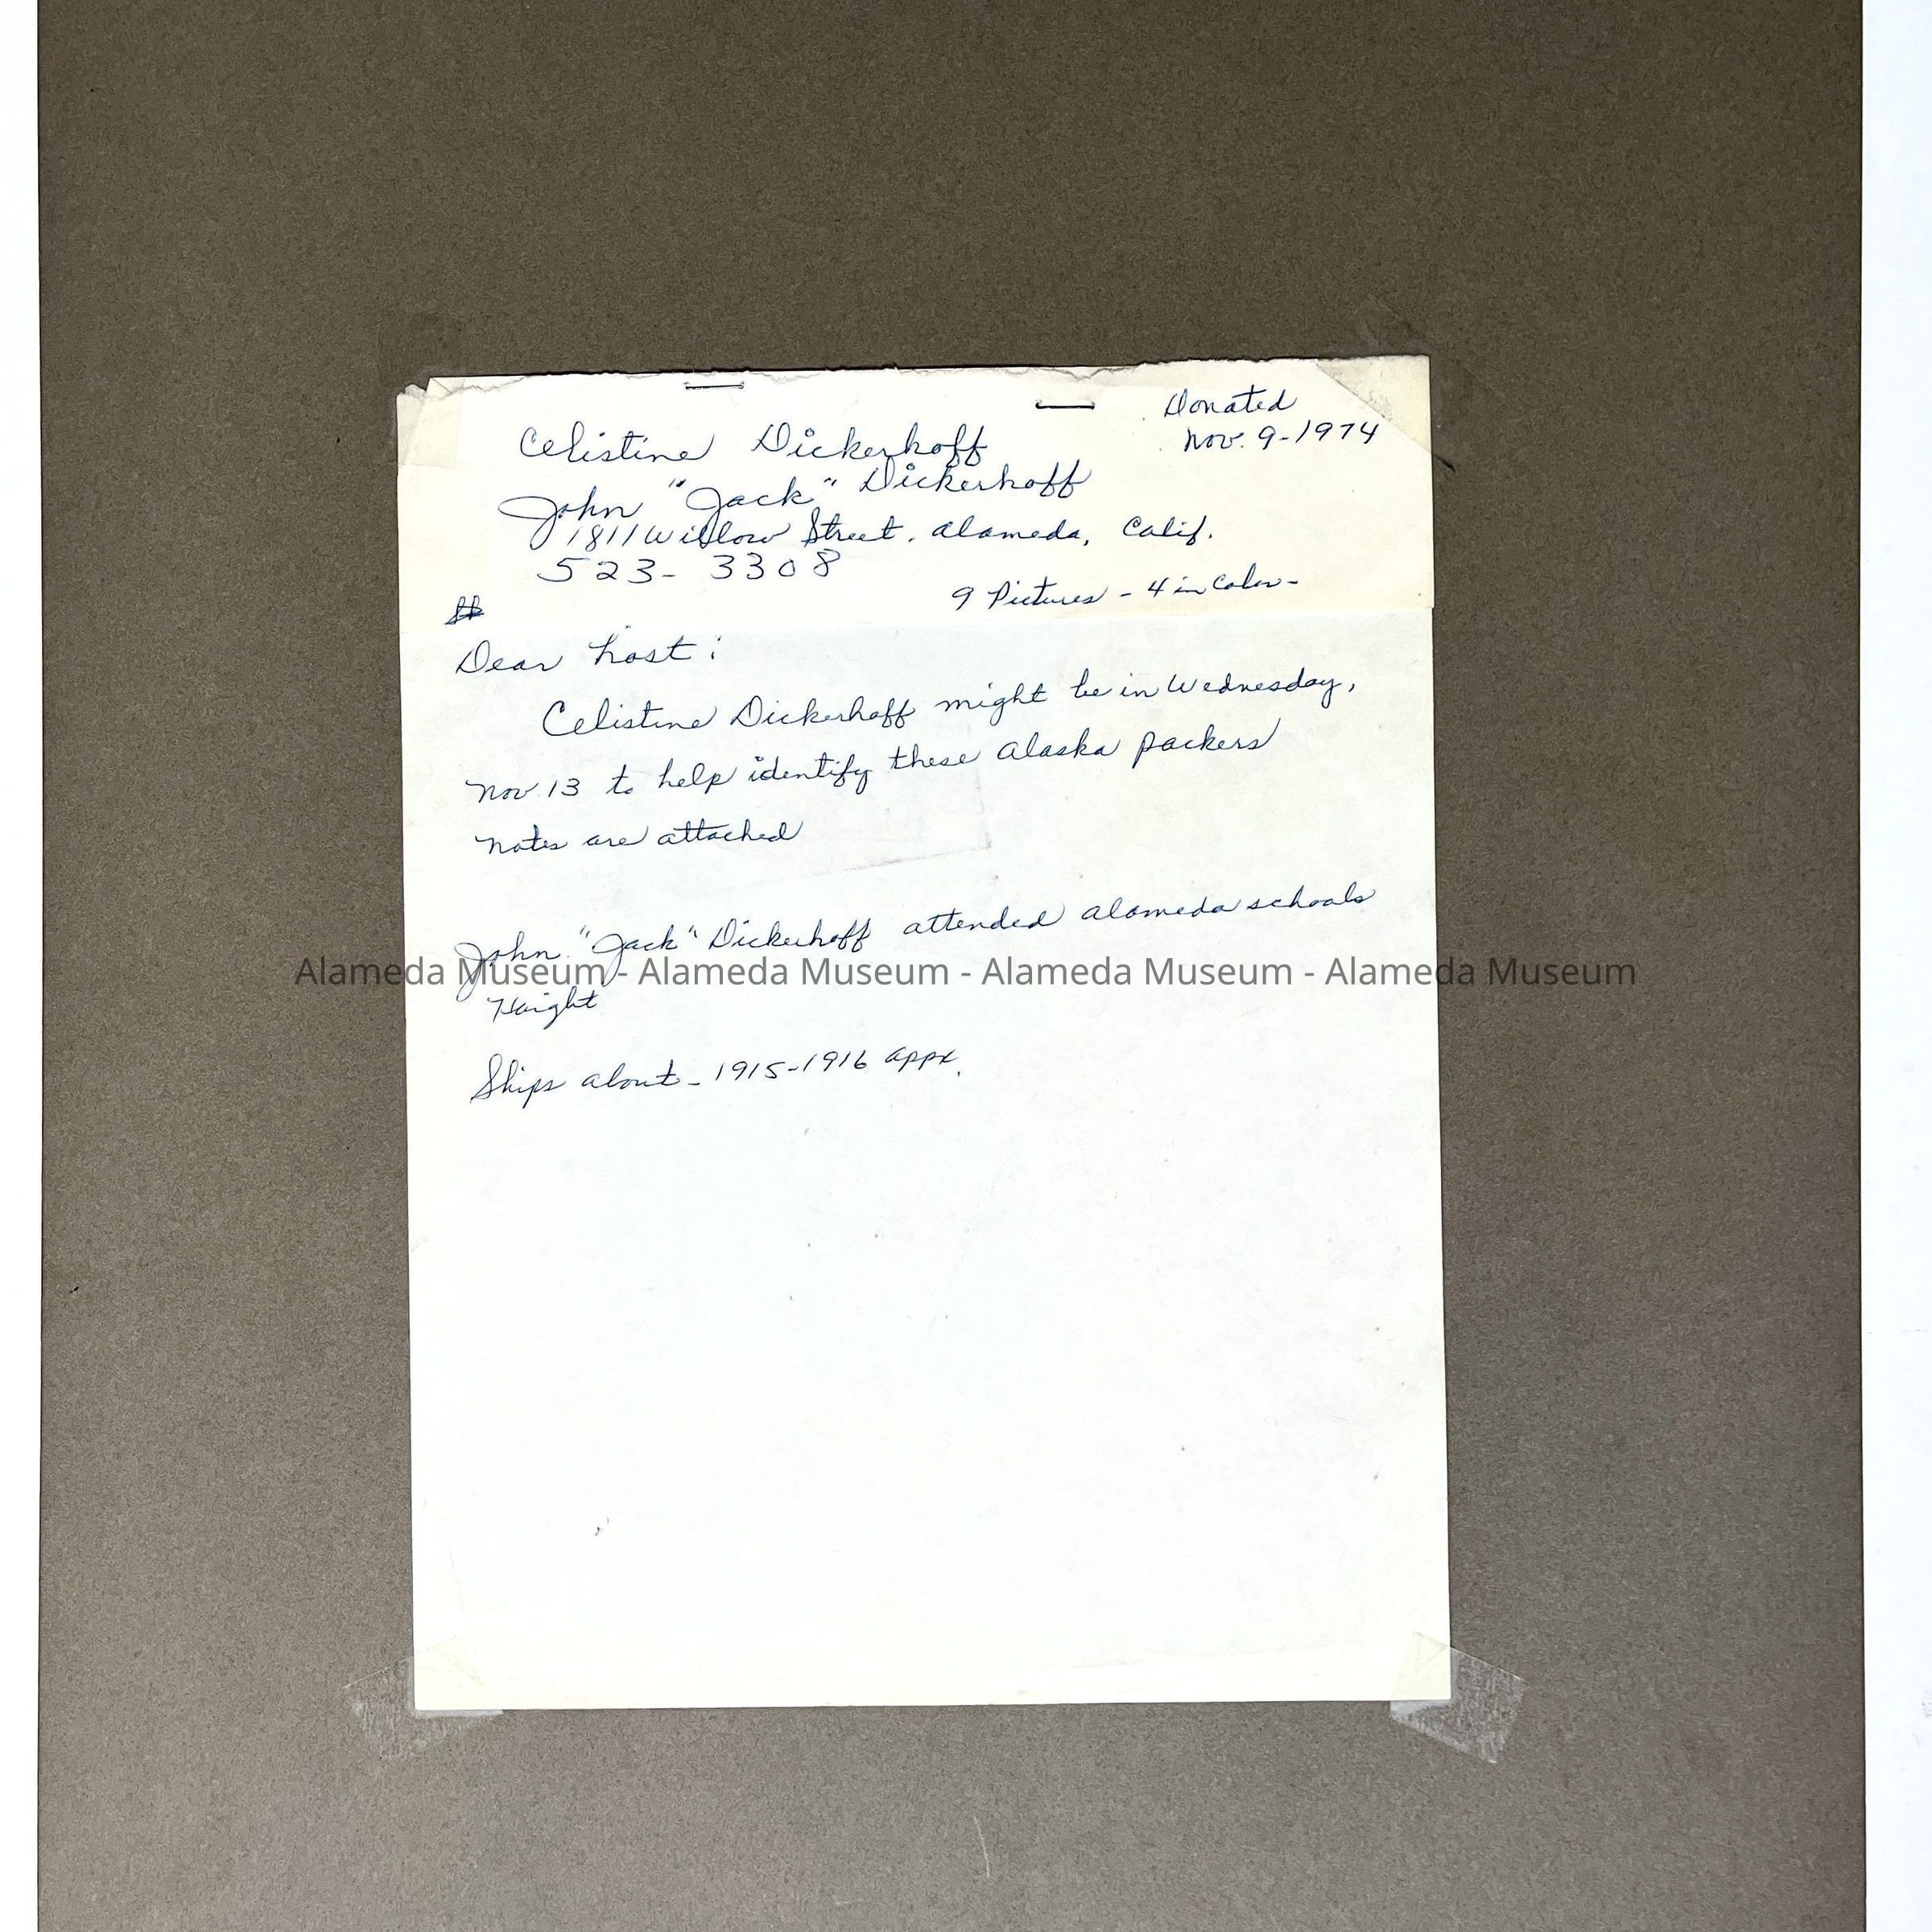 Donated
Nov. 9-1974
Celistine Dickerhoff
John "Jack" Dickerhoff
1811 Willow Street. Alameda, Calif.
523-3308
9 Pictures - 4 in Color-
Dear host:
Celistine Dickerhoff might be in Wednesday,
Nov 13 to help identify these Alaska packers
notes are attached
John "Jack" Dickerhoff attended Alameda schools
Alameda Museum - Alameda Museum - Alameda Museum - Alameda Museum
Haight
Ships about - 1915-1916 appx.